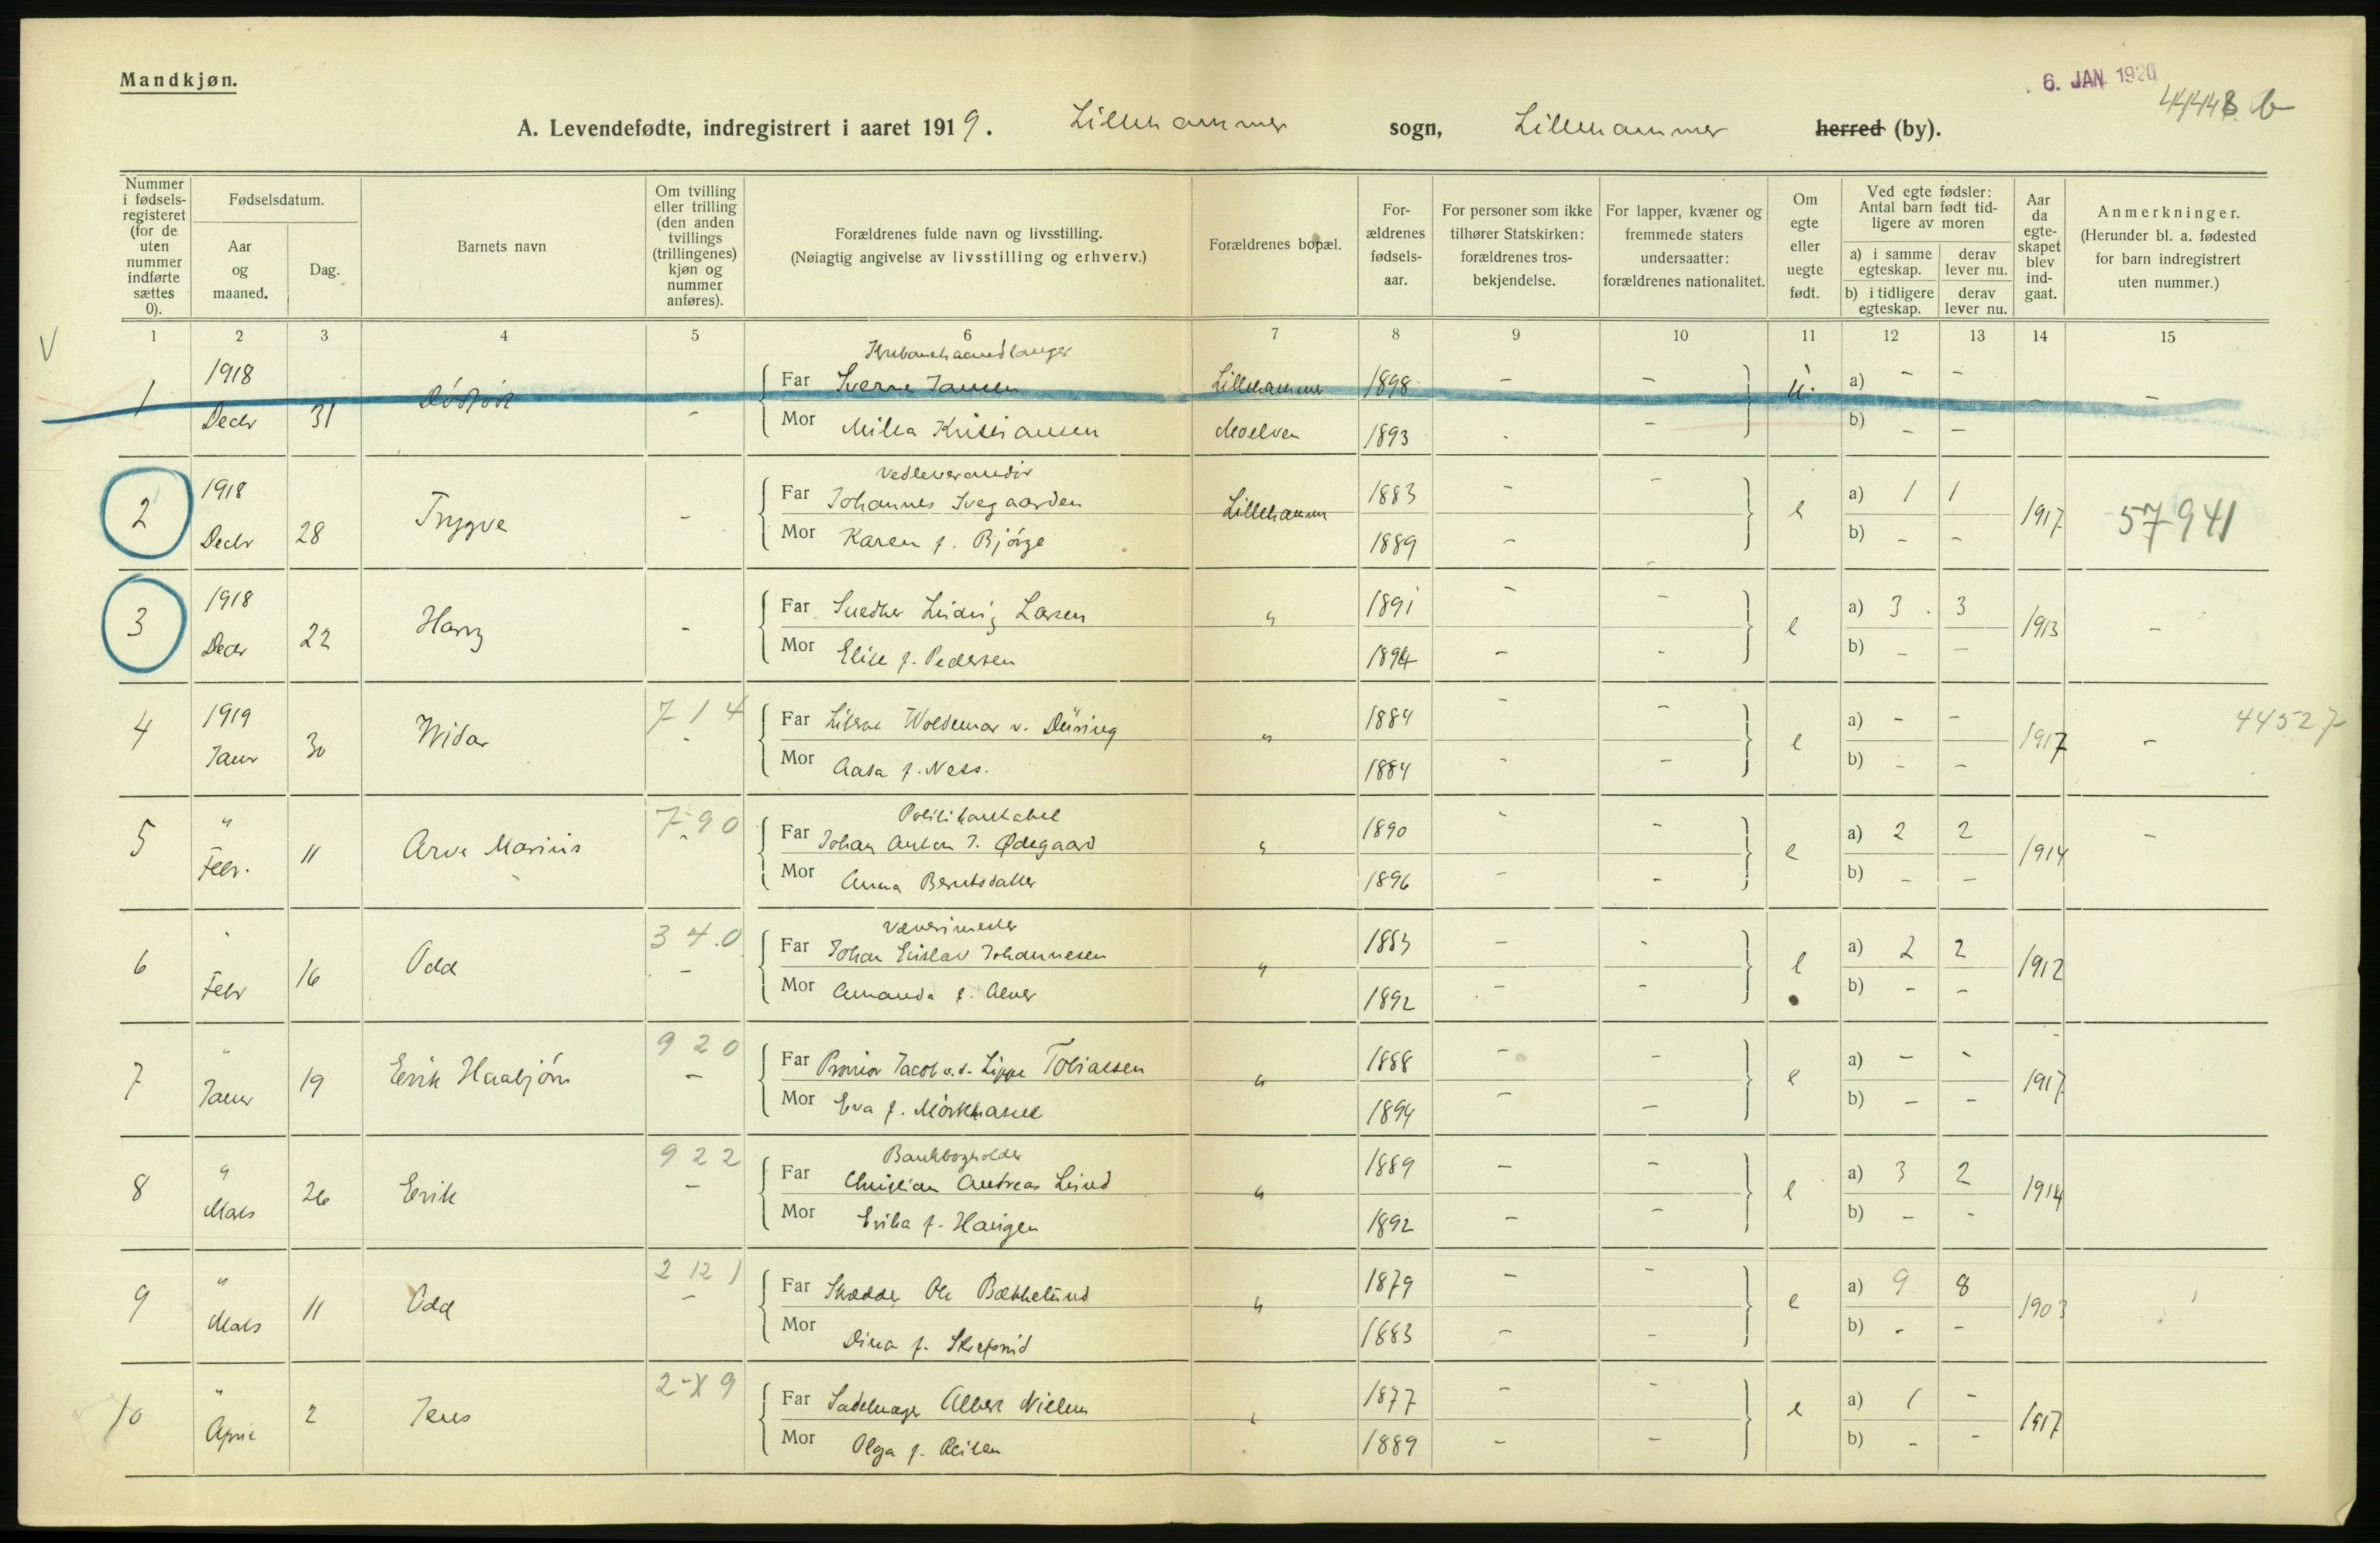 Mandkjøn.
6. JAN. 1920
A. Levendefødte, indregistrert i aaret 1919. Lillehammer sogn, Lillehammer herred (by).
Nummer i fødselsregisteret (for de uten nummer indførte sættes 0).
Fødselsdatum.
Aar og maaned.
Dag.
Barnets navn
Om tvilling eller trilling (den anden tvillings (trillingenes) kjøn og nummer anføres).
Forældrenes fulde navn og livsstilling.
(Nøiagtig angivelse av livsstilling og erhverv.)
Forældrenes bopæl.
Forældrenes fødselsaar.
For personer som ikke tilhører Statskirken: forældrenes trosbekjendelse.
For lapper, kvæner og fremmede staters undersaatter: forældrenes nationalitet.
Om egte eller uegte født.
Ved egte fødsler: Antal barn født tidligere av moren
a) i samme egteskap.
derav lever nu.
b) i tidligere egteskap.
derav lever nu.
Aar da egteskapet blev indgaat.
Anmerkninger.
(Herunder bl. a. fødested for barn indregistrert uten nummer.)
1 2 3 4 5 6 7 8 9 10 11 12 13 14 15
1 1918 Decbr 31 Dødfødt -
Far Sverre Jansen Lillehammer 1898 - - u. a) - -
Mor Milla Kristiansen Moelven 1893 - - b) - -
Vedleverandør
2 1918 Decbr 28 Trygve -
Far Johannes Svegaarden Lillehammer 1883 - - e a) 1 1 1917 57941
Mor Karen f. Bjørge 1889 - - b) - -
3 1918 Decbr 22 Harry -
Far Snedker Ludvig Larsen " 1891 - - e a) 3 3 1913 -
Mor Elise f. Pedersen 1894 - - b) - -
4 1919 Janr 30 Widar 7 1 4 -
Far Woldemar v. Düring " 1884 - - e a) - - 1917 - 44527
Mor Aasa f. Ness. 1884 - - b) - -
Politikonstabel
5 " Febr. 11 Arve Marius 7 90
Far Johan Anton J. Ødegaard " 1890 - - e a) 2 2 1914 -
Mor Anna Berntsdatter 1896 - - b) - -
Væverimester
6 " Febr 16 Odd 3 4.0 -
Far Johan Johannesen " 1883 - - e a) 2 2 1912
Mor Amanda f. 1892 - - b) - -
7 " Janr 19 Erik Haabjørn 9 20 -
Far Jacob v. d. Lippe Tobiassen " 1888 - - e a) - - 1917
Mor Eva f. 1894 - - b) - -
Bankbogholder
8 " Mars 26 Erik 9 22 -
Far Christian Andreas Lund " 1889 - - e a) 3 2 1914
Mor Erika f. Haugen 1892 - - b) - -
9 " Mars 11 Odd 2 12 1 -
Far Skrædder Ole Bækkelund " 1879 - - e a) 9 8 1903
Mor Dina f. Skrefsrud 1883 - - b) - -
10 " April 2 Jens
Far Sadelmager Albert Nielsen " 1877 - - e a) 1 - 1917
Mor Olga f. 1889 - - b) - -